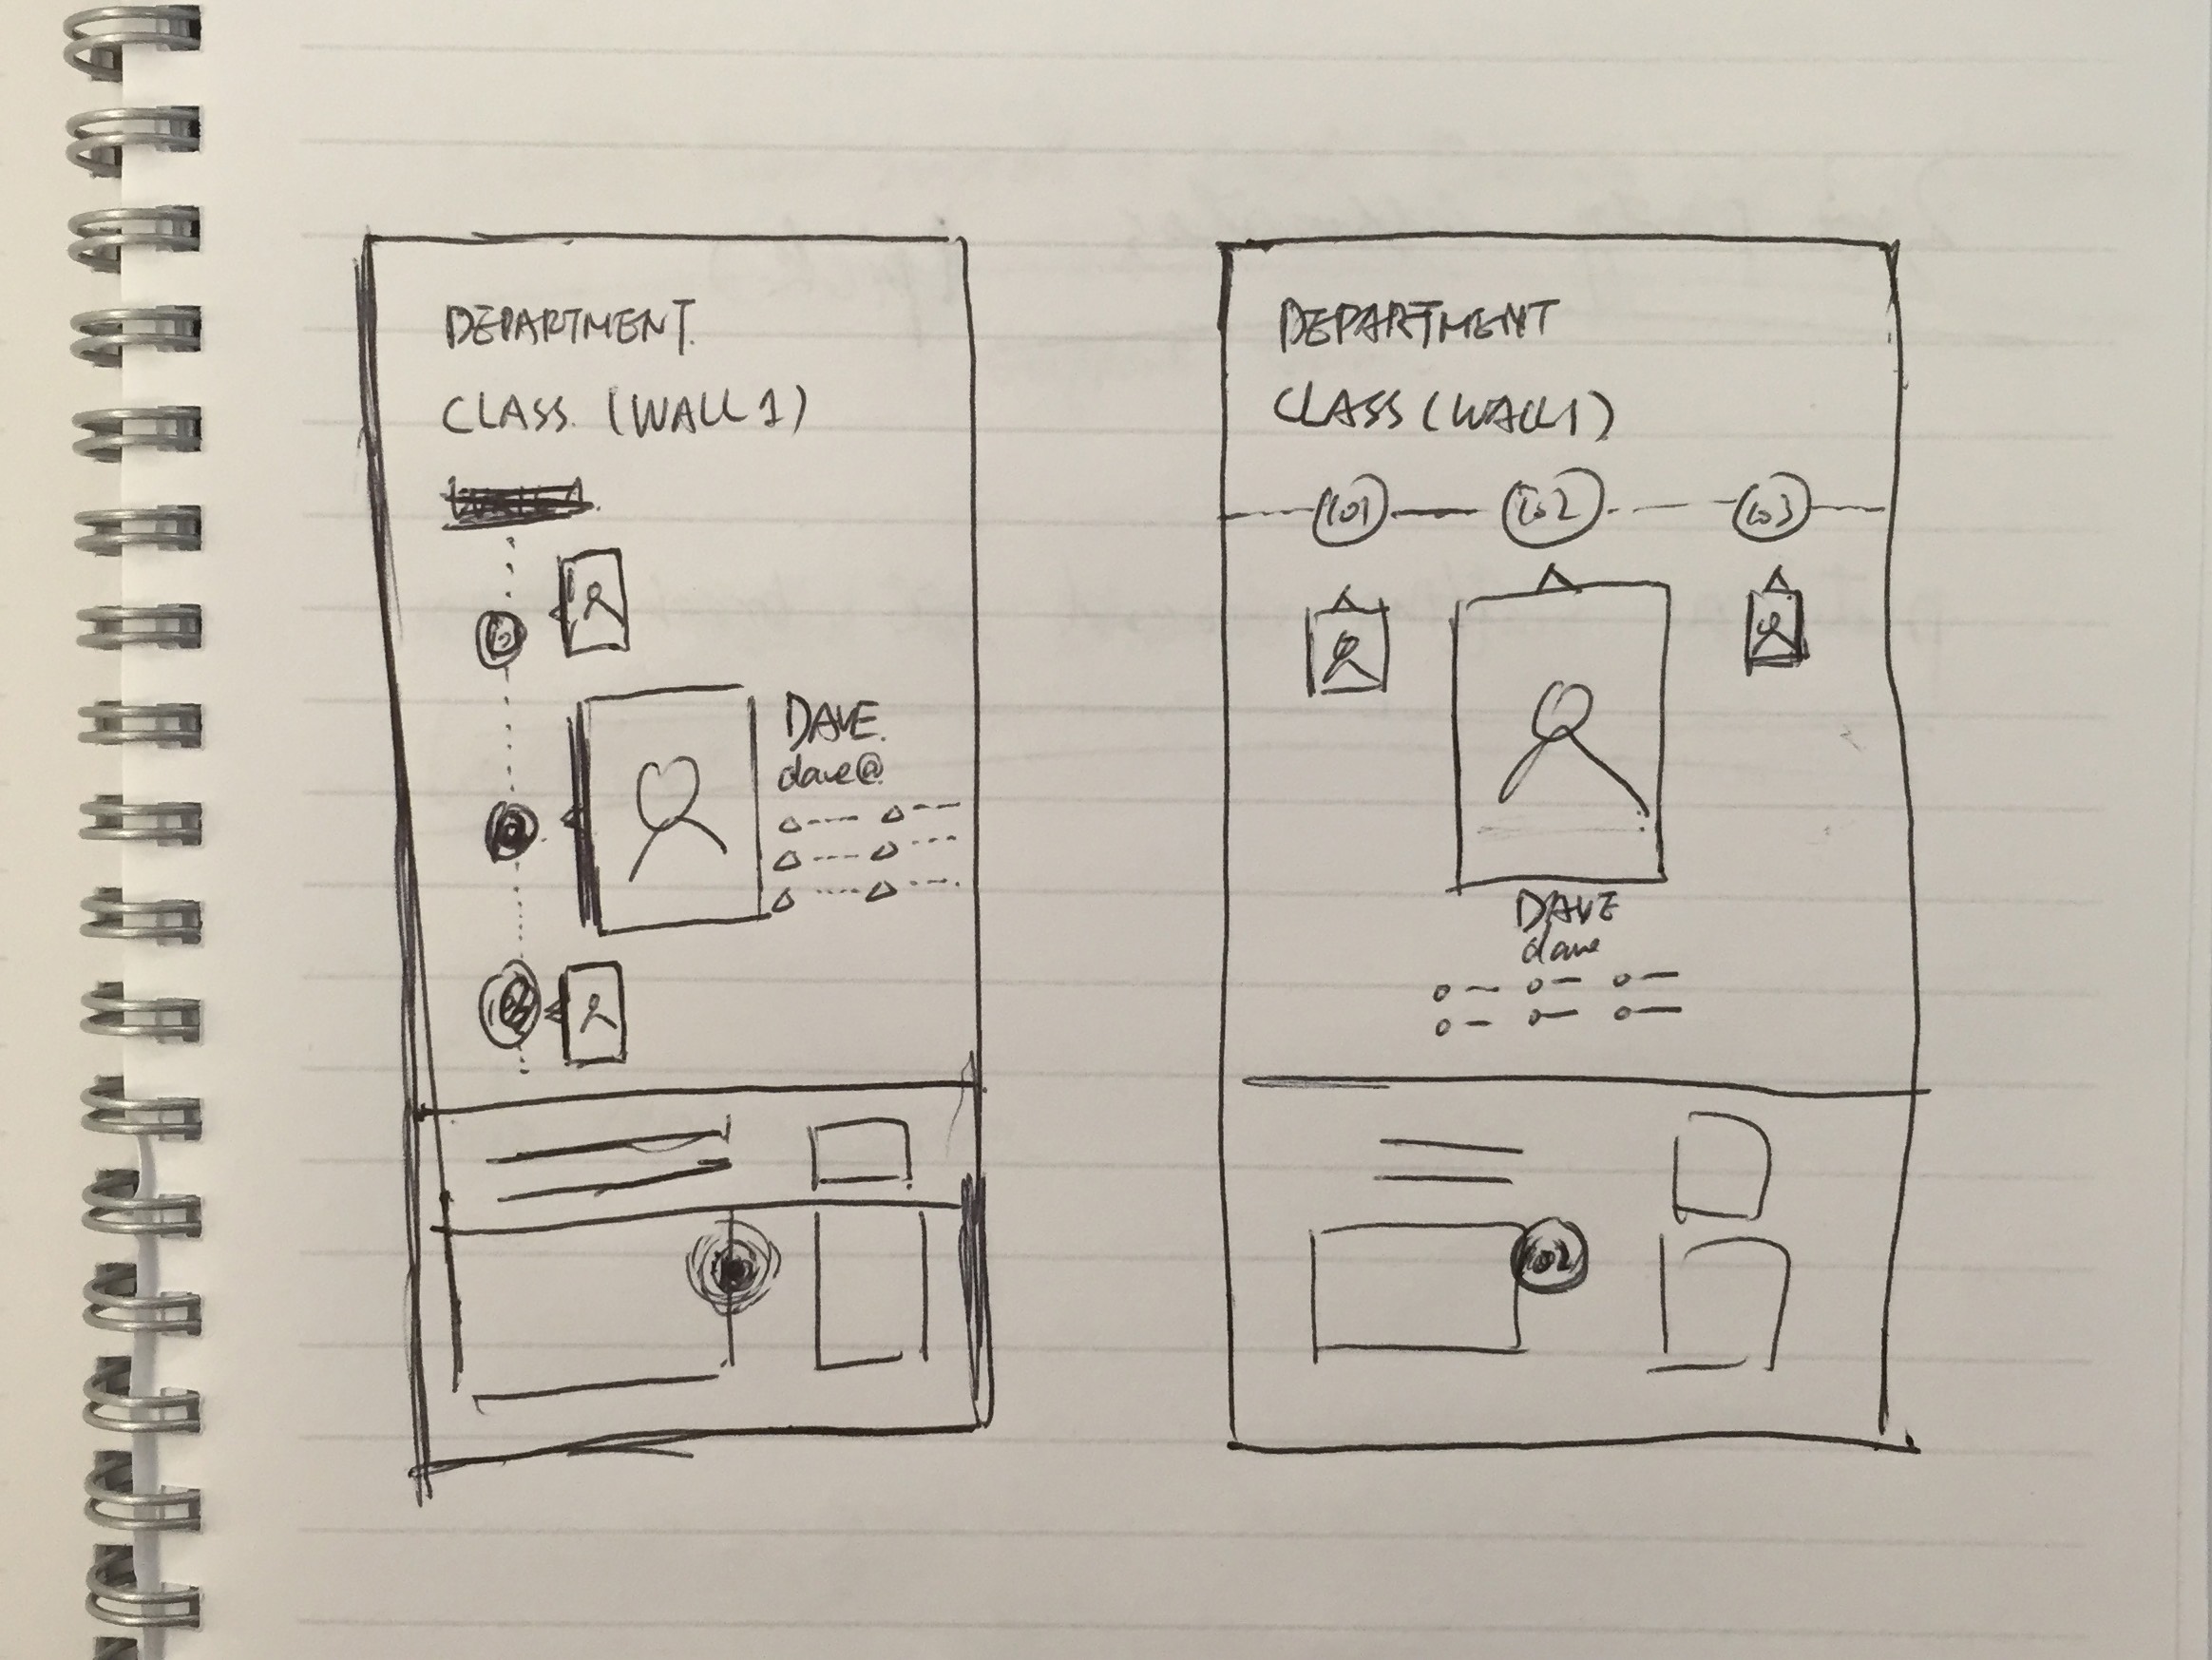 DEPARTMENT.
CLASS. (WALL 1)
DAVE.
dave@
DEPARTMENT
CLASS (WALL 1)
101 102 103
DAVE
dave
102